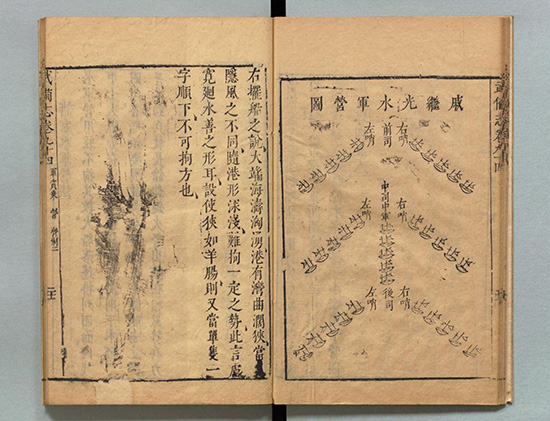 戚繼光水軍營圖
右哨
前司
左哨
右哨
中司中軍
左哨
右哨
後司
左哨
右擺船之說大端海濤洶湧港有灣曲濶狹當
隱風之不同隨港形深淺難拘一定之勢此言處
寬廻水善之形耳設使狹如羊腸則又當單隻一
字順下不可拘方也
武備志卷九十四 軍資乘 營